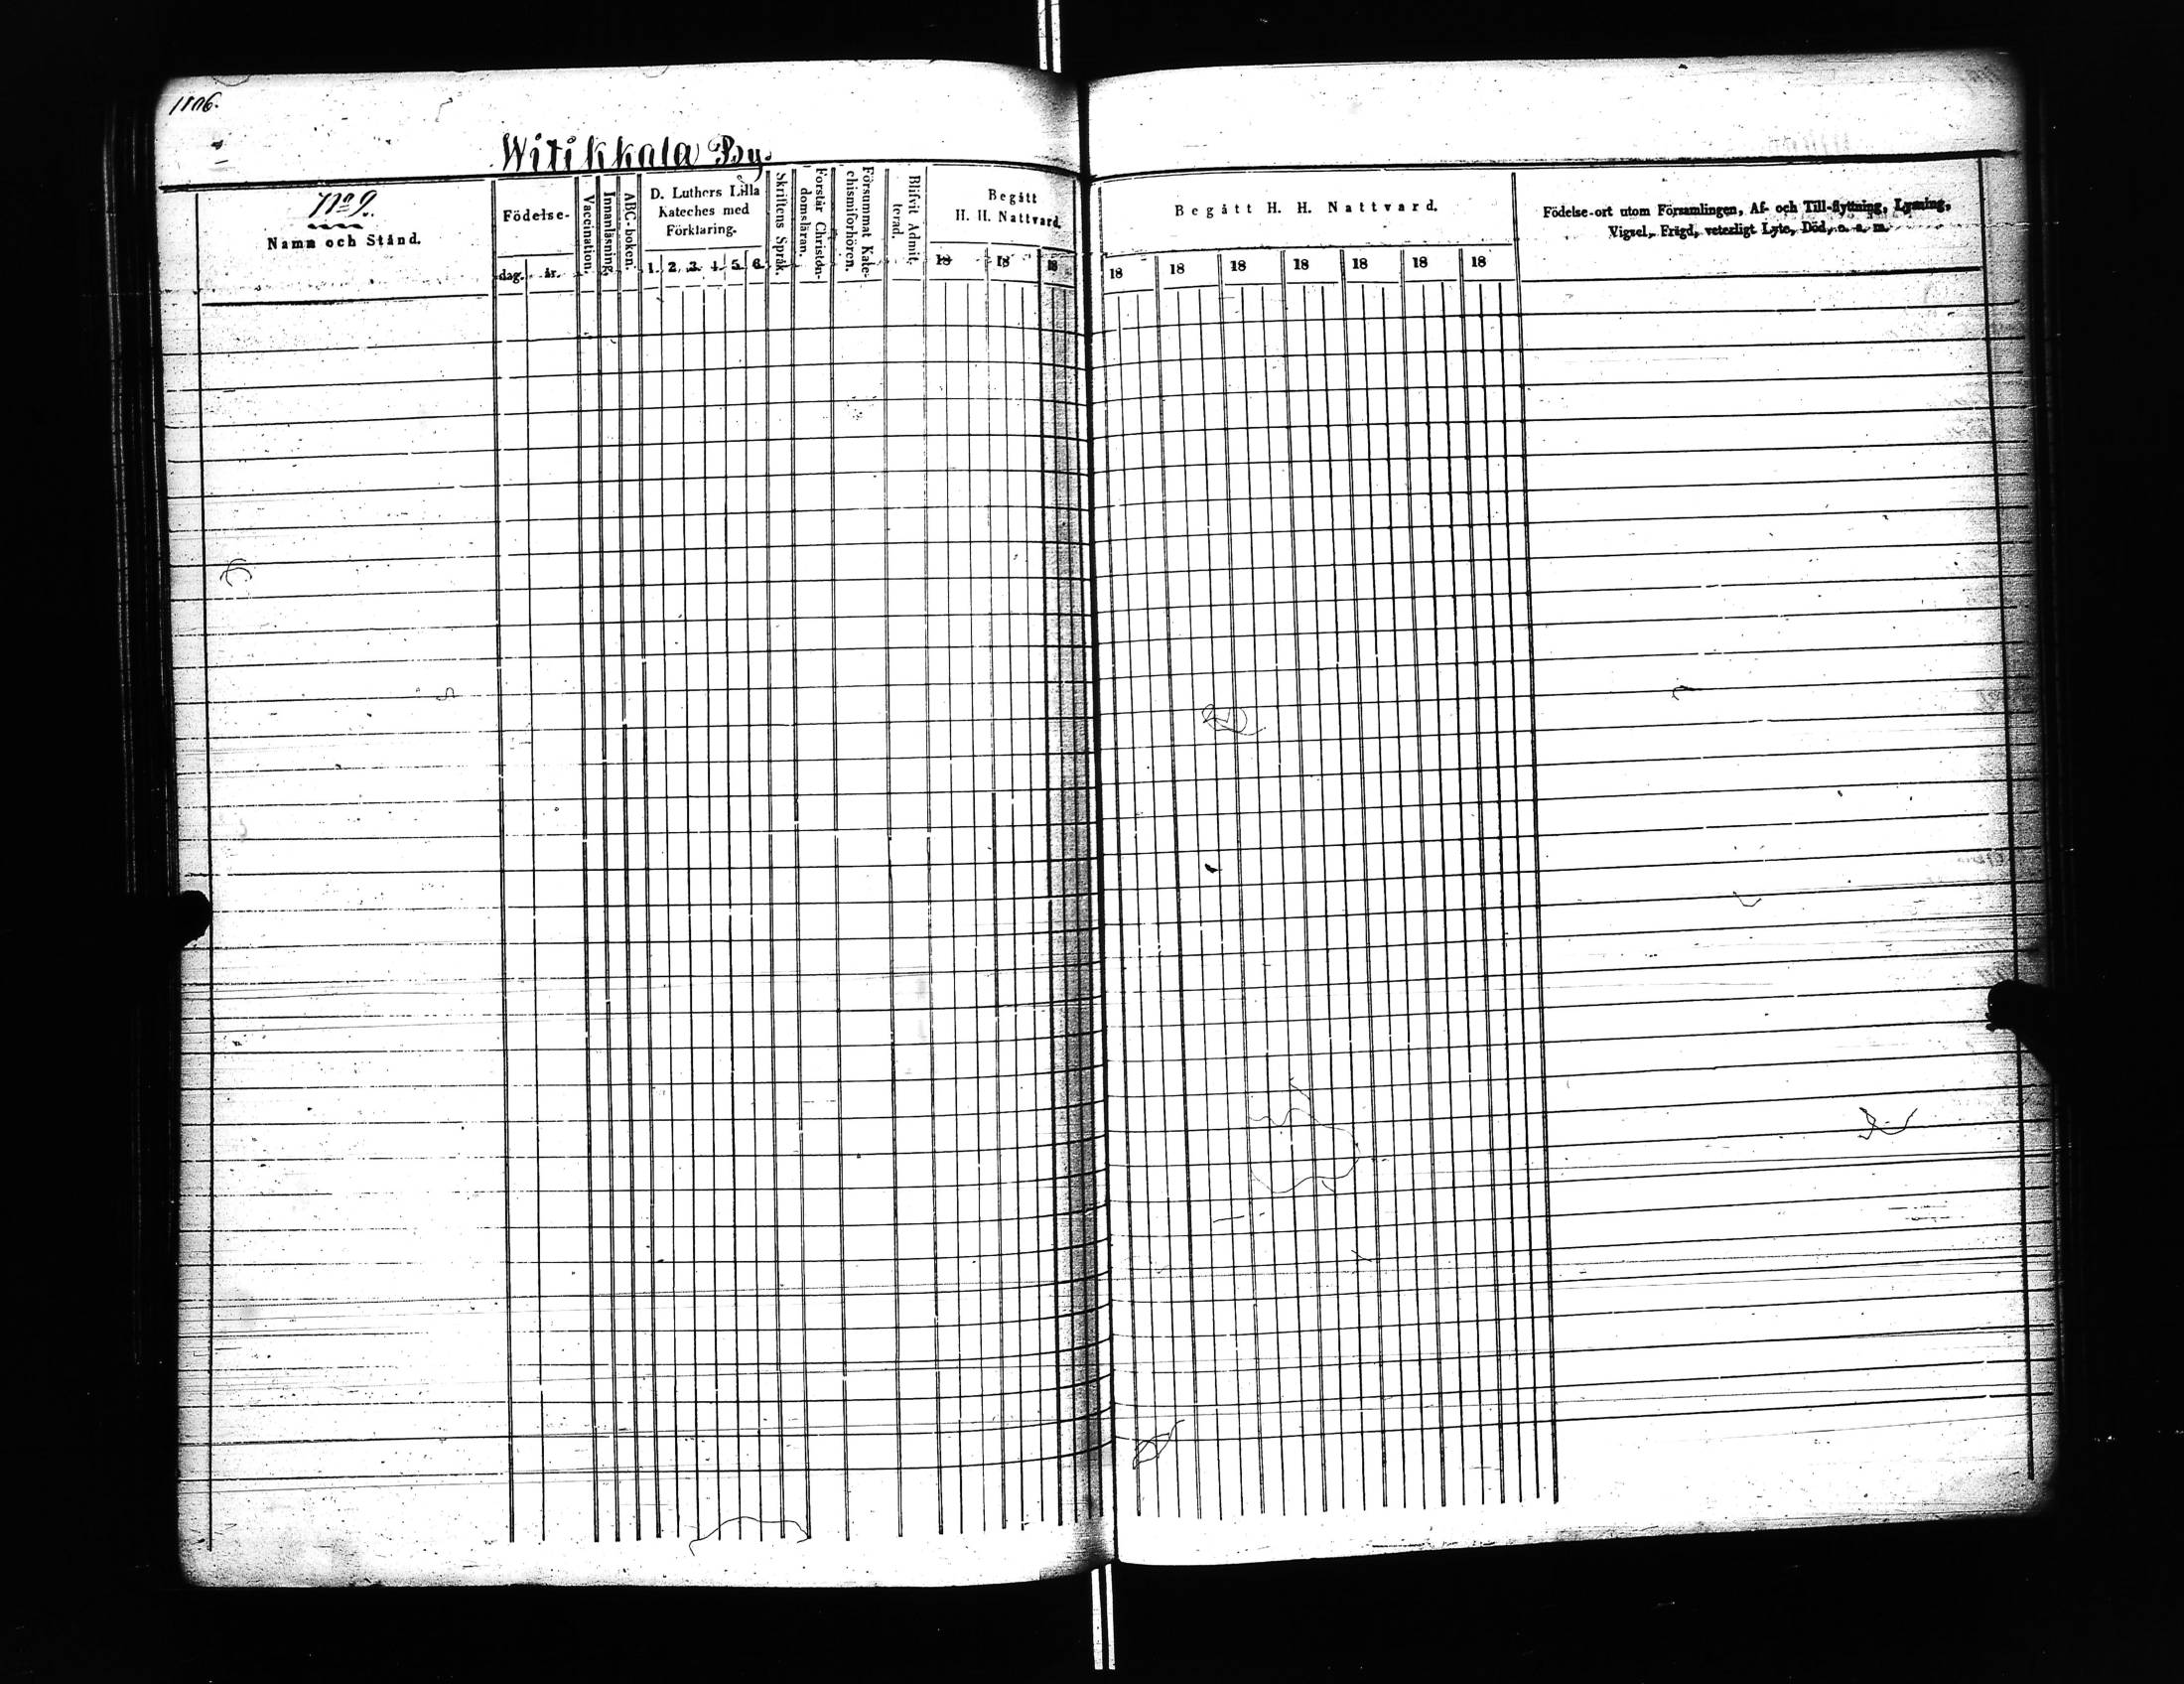 1106.
Witikkala By.
No 9.
Namn och Stånd.
Födelse-
dag. år.
Vaccination.
Innanläsning.
ABC-boken.
D. Luthers Lilla
Kateches med
Förklaring.
1. 2. 3. 4. 5. 6.
Skriftens Språk.
Förstår Christen-
domsläran.
Försummat Kate-
chismiförhören.
Blifvit Admit-
terad.
Begått
H. H. Nattvard.
18 18 18
Begått H. H. Nattvard.
18 18 18 18 18 18 18
Födelse-ort utom Församlingen, Af- och Till-flyttning, Lysning,
Vigsel, Frägd, veterligt Lyte, Död, o. s. m.